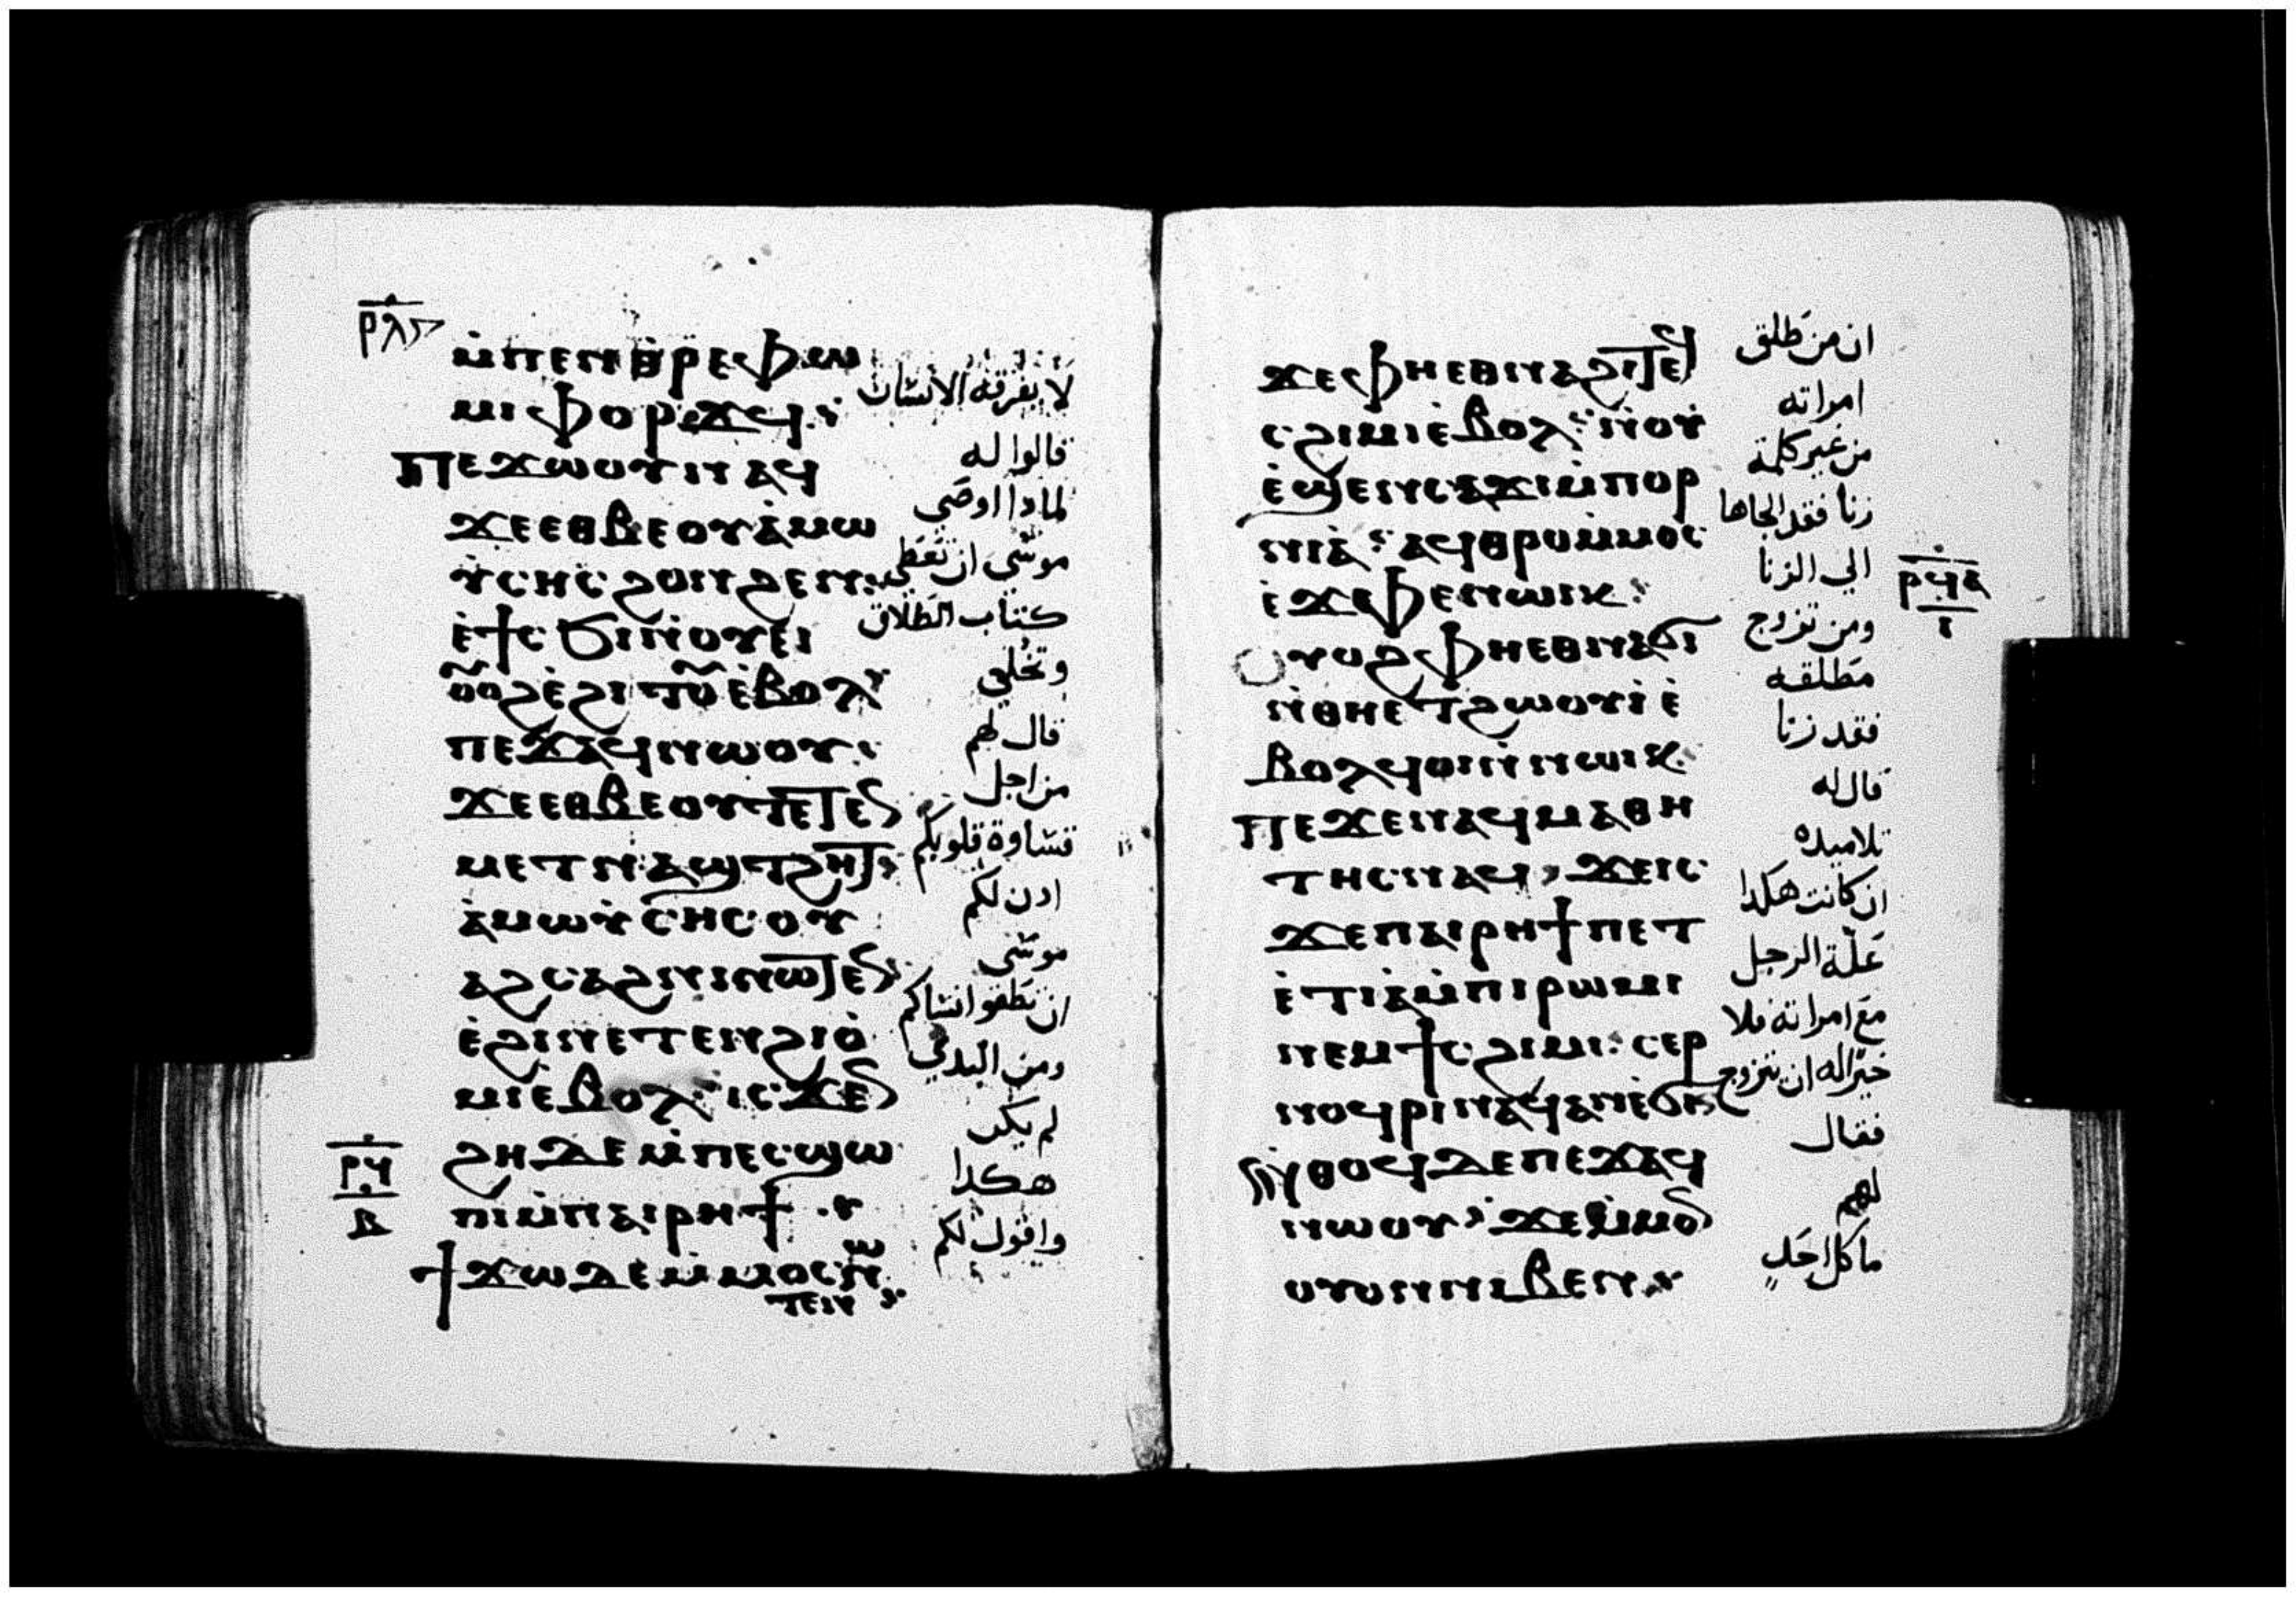 ⲣⲗⲋ
ⲙ̀ⲡⲉⲛⲑⲣⲉⲫⲣⲱ
ⲙⲓⲫⲟⲣϫϥ
ⲡⲉϫⲱⲟⲩⲛⲁϥ
ϫⲉⲉⲑⲃⲉⲟⲩⲁ̀ⲙⲱ
ⲩ̀ⲥⲏⲥϩⲟⲛϩⲉⲛ
ⲉ̀ϯⲥϭⲓⲛⲟⲩⲉⲓ
ⲟⲩⲟϩⲉ̀ϩⲓⲧⲟⲩⲉ̀ⲃⲟⲗ
ⲡⲉϫⲁϥⲛⲱⲟⲩ
ϫⲉⲉⲑⲃⲉⲟⲩⲧⲉⲧⲉⲛ
ⲙⲉⲧⲛⲁϣⲧϩⲏⲧ
ⲁ̀ⲙⲱⲩ̀ⲥⲏⲥⲟⲩ
ⲁϩⲥⲁϩⲛⲓⲛⲱⲧⲉⲛ
ⲉ̀ϩⲓⲛⲉⲧⲉⲛϩⲓⲟ̀
ⲙⲓⲉ̀ⲃⲟⲗⲓⲥϫⲉⲛ
ϩⲏⲇⲉⲙ̀ⲡⲉⲥϣⲱ
ⲡⲓⲙ̀ⲡⲁⲓⲣⲏϯ
ϯϫⲱⲇⲉⲙ̀ⲙⲟⲥⲛⲱ
ⲧⲉⲛ
ⲣϥ
ⲃ
لا يفرقه الانسان
قالوا له
لمادا اوصى
موسى ان تعطى
كتاب الطلاق
وتخلي
قال لهم
من اجل
قساوة قلوبكم
ادن لكم
موسى
ان تطلقوا نساكم
ومن البدي
لم يكن
هكدا
واقول لكم
ϫⲉⲫⲏⲉⲑⲛⲁϩⲓⲧⲉϥ
ⲥϩⲓⲙⲓⲉ̀ⲃⲟⲗⲛ̀ⲟⲩ
ⲉ̀ϣⲉⲛⲥⲁϫⲓⲙ̀ⲡⲟⲣ
ⲛⲓⲁ̀ⲁϥⲑⲣⲟⲙ̀ⲙⲟⲥ
ⲉ̀ϫⲉⲫⲉⲛⲱⲓⲕ
ⲟⲩⲟϩⲫⲏⲉⲑⲛⲁϭⲓ
ⲛ̀ⲑⲏⲉⲧϩⲱⲟⲩⲓ̀ⲉ̀
ⲃⲟⲗϥⲟⲓⲛ̀ⲛⲱⲓⲕ
ⲡⲉϫⲉⲛⲁϥⲙⲁⲑⲏ
ⲧⲏⲥⲛⲁϥϫⲉⲓⲥ
ϫⲉⲡⲁⲓⲣⲏϯⲡⲉⲧ
ⲉ̀ⲧⲓⲁ̀ⲙ̀ⲡⲓⲣⲱⲙⲓ
ⲛⲉⲙϯⲥϩⲓⲙⲓⲥⲉⲣ
ⲛⲟϥⲣⲓⲛⲁϥⲁⲛⲉ̀ϭⲓ
ⲛ̀ⲑⲟϥⲇⲉⲡⲉϫⲁϥ
ⲛⲱⲟⲩϫⲉⲙ̀ⲙⲟⲛ
ⲟⲩⲟⲛⲛⲓⲃⲉⲛ
ان من طلق
امراته
من غير كلمة
زنا فقد الجاها
الي الزنا
ومن تزوج
مطلقه
فقد زنا
قال له
تلاميده
ان كانت هكدا
علة الرجل
مع امراته فلا
خير له ان يتزوج
فقال
لهم
ما كل احد
ⲣϥⲁ
ⲓ